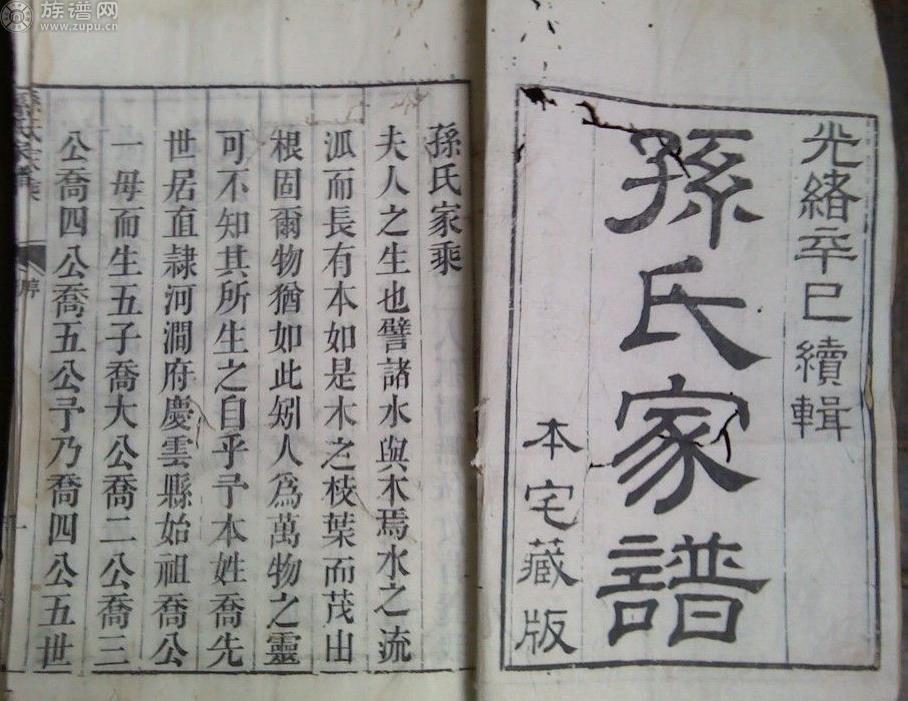 族谱网
www.zupu.cn
光緒辛巳續輯
孫氏家譜
本宅藏版
孫氏家乘
夫人之生也譬諸水與木焉水之流
泒而長有本如是木之枝葉而茂出
根固爾物猶如此矧人爲萬物之靈
可不知其所生之自乎予本姓喬先
世居直隸河澗府慶雲縣始祖喬公
一母而生五子喬大公喬二公喬三
公喬四公喬五公予乃喬四公五世